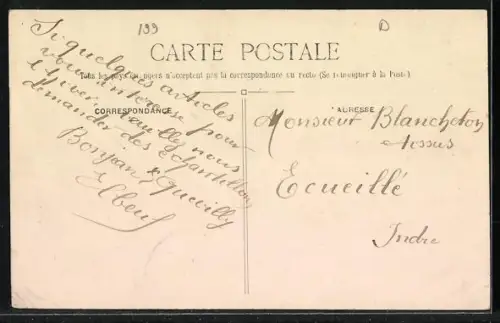 199
D
CARTE POSTALE
Tous les pays étrangers n'acceptent pas la correspondance au recto (Se renseigner à la Poste)
CORRESPONDANCE
Si quelques articles
vous intéresse pour
l'hiver veuillez nous
demander des échantillons
Bonpain & Quevilly
Elbeuf
ADRESSE
Monsieur Blancheton
tissus
Ecueillé
Indre